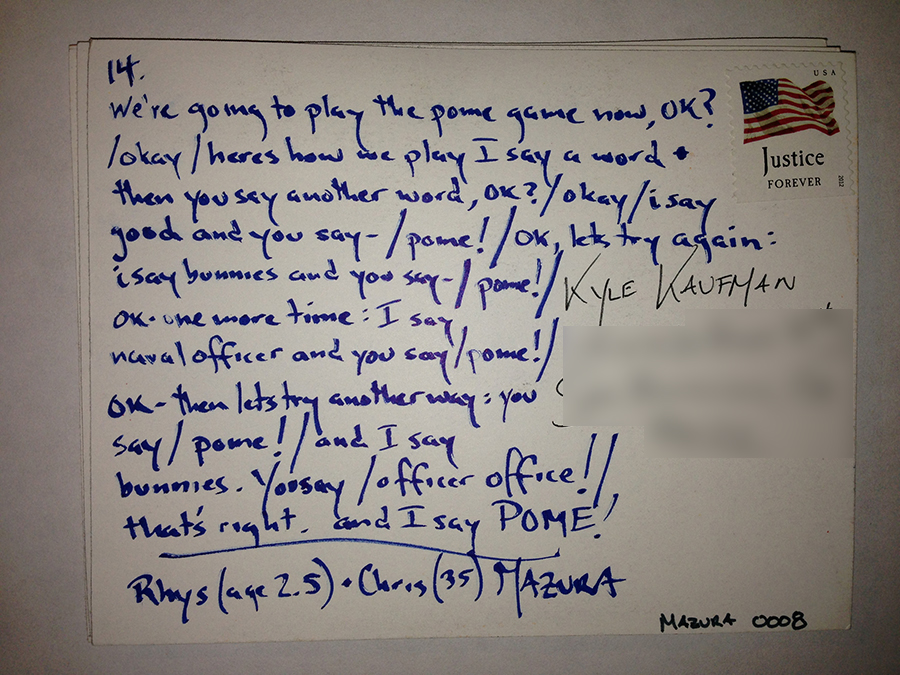 14.
We're going to play the pome game now, OK?
/okay/heres how we play I say a word +
then you say another word, OK?/okay/i say
good and you say-/pome!/OK, lets try again:
i say bunnies and you say-/pome!/
OK-one more time: I say
naval officer and you say/pome!/
OK-then lets try another way: you
say/pome!/and I say
bunnies. You say/officer office!/
that's right. and I say POME!
Rhys (age 2.5) + Chris (35) MAZURA
MAZURA 0008
KYLE KAUFMAN
USA
Justice
FOREVER
2012